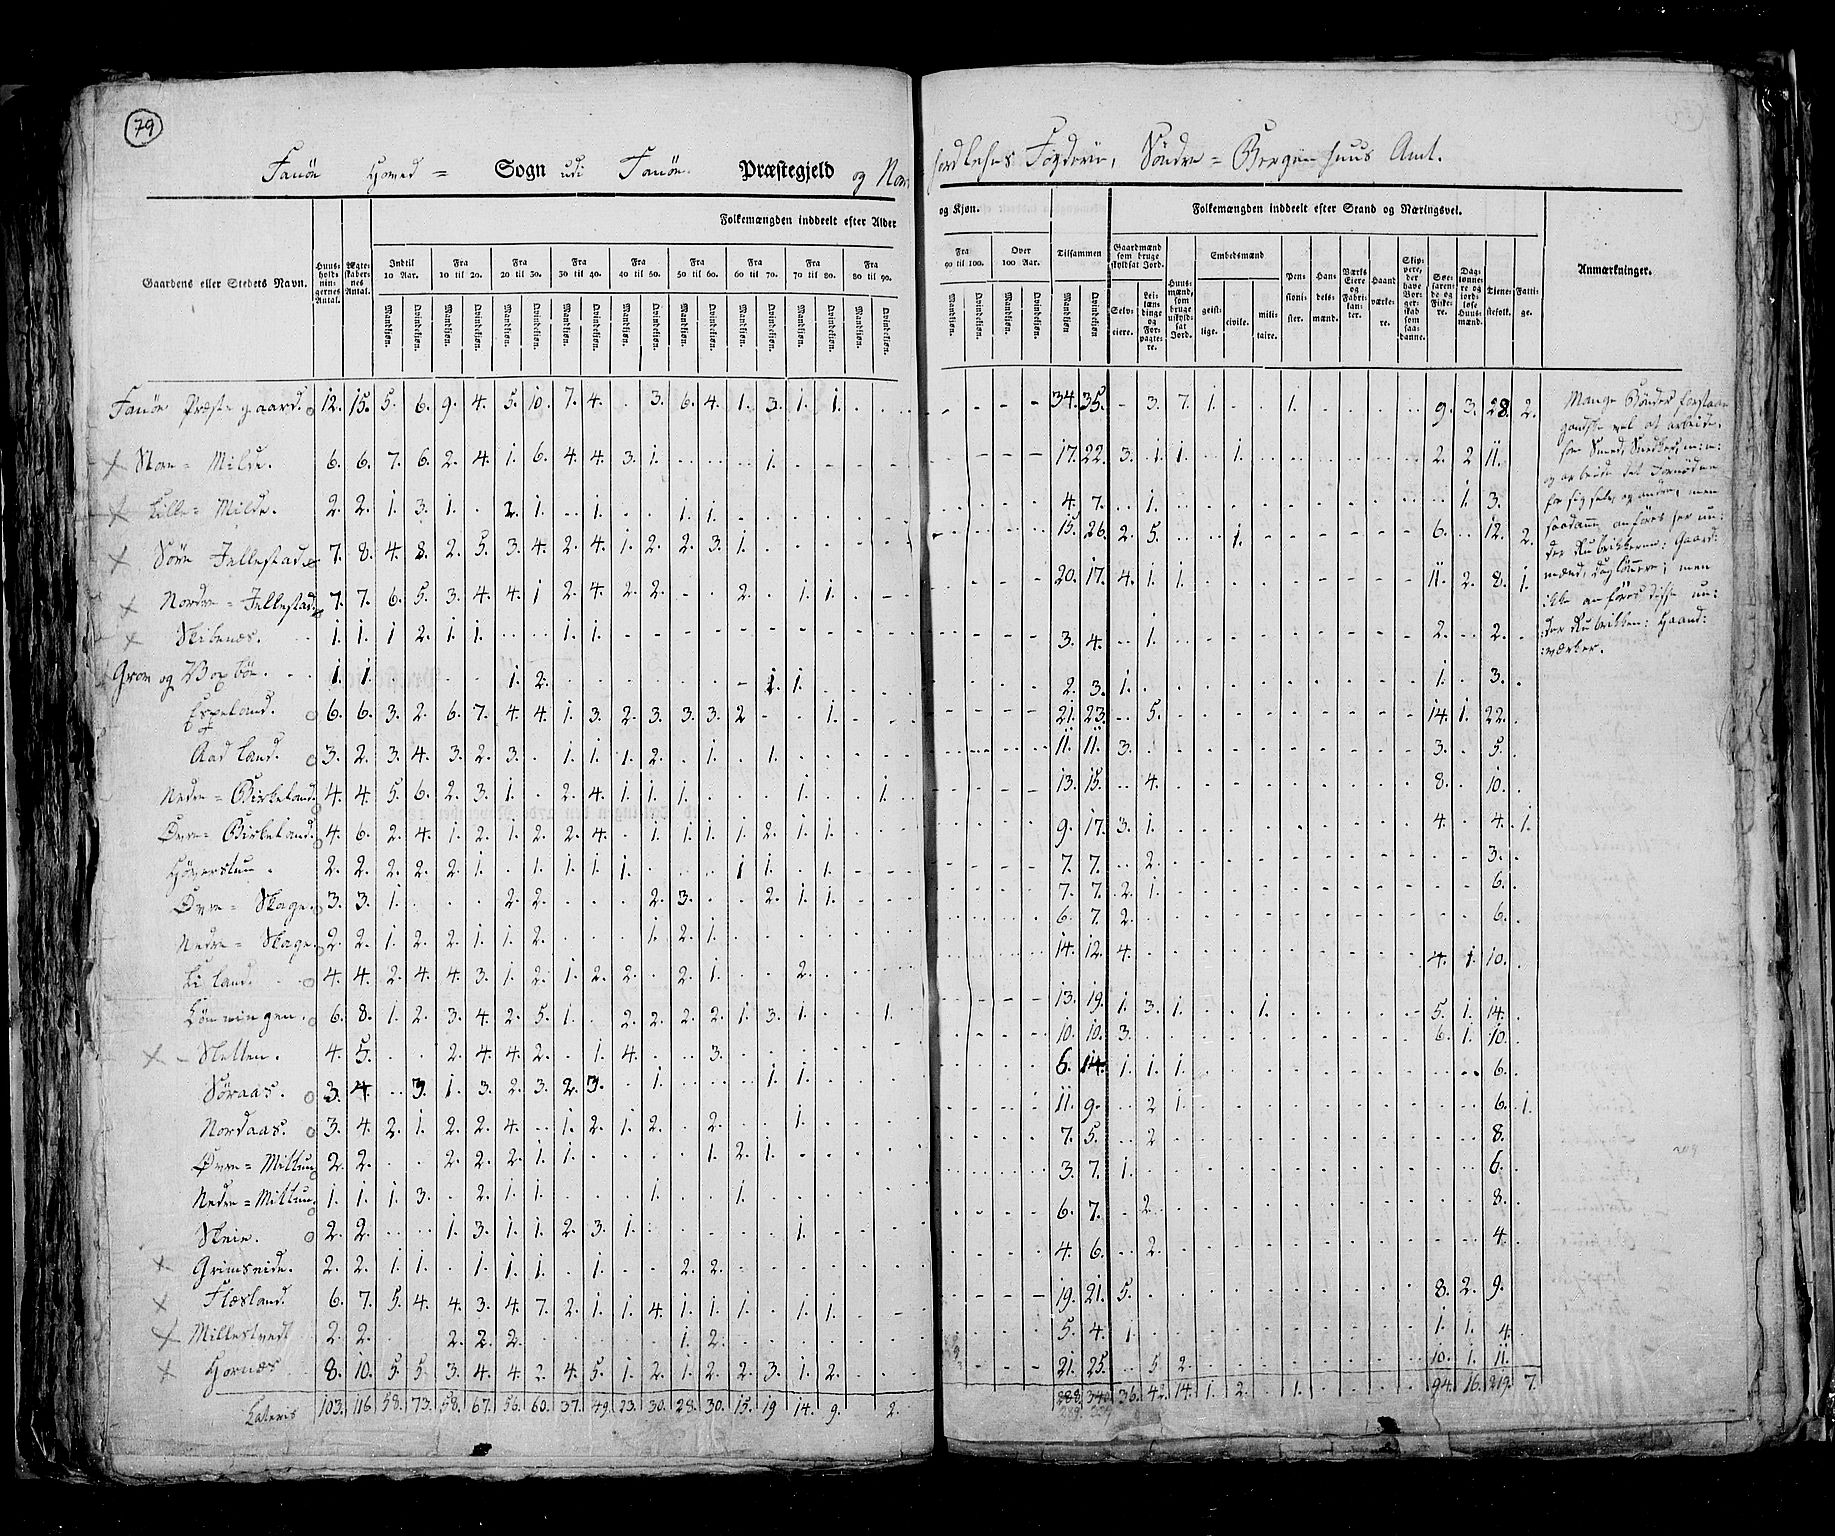 79
Fanöe Hoved = Sogn udi Fanöe Præstegjeld og Nordhorlehns Fogderie, Söndre = Bergenhuus Amt.
Gaardens eller Stedets Navn.
Huusholdningernes Antal.
Ægteskabernes Antal.
Folkemængden inddeelt efter Alder og Kjøn.
Indtil 10 Aar.
Fra 10 til 20.
Fra 20 til 30.
Fra 30 til 40.
Fra 40 til 50.
Fra 50 til 60.
Fra 60 til 70.
Fra 70 til 80.
Fra 80 til 90.
Fra 90 til 100.
Over 100 Aar.
Tilsammen
Mandkiøn. Qvindekiøn.
Folkemængden inddeelt efter Stand og Næringsvei.
Gaardmænd som bruge skyldsat Jord.
Selveiere.
Leilændinge og Forpagtere.
Huusmænd, som bruge uskyldsat Jord.
Embedsmænd
geistlige.
civile.
militaire.
Pensionister.
Handelsmænd.
Værks Eiere og Fabrikanter.
Haandværkere.
Skippere, der have Borgerskab som saadanne.
Søefarende og Fiskere.
Daglønnere og jordløse Huusmænd.
Tienestefolk.
Fattige.
Anmærkninger.
Fanöe Præstegaard. 12. 15. 5. 6. 9. 4. 5. 10. 7. 4. . 3. 6. 4. 1. 3. 1. 1. 34. 35. - 3. 7. 1. 1. 9. 3. 28. 2.
Store = Milde. 6. 6. 7. 6. 2. 4. 1. 6. 4. 4. 3. 1. 1. 17. 22. 3. 1. 1. 1. 2. 2 11.
Lille = Milde. 2. 2. 1. 3. 1. . 2. 1. . 1. 1. 1. 4. 7. 1. 1. 3.
Söre Fellestad 7. 8. 4. 8. 2. 5. 3. 4. 2. 4. 1. 2. 2. 3. 1. 15. 26. 2. 5. 1. 6. 12. 2.
Nordre = Fellestad. 7. 7. 6. 5. 3. 4. 4. 1 2. 4. 2. 2. 2. 1. 1. 20. 17. 4. 1. 1. 11. 2. 8. 1.
Skibenæs. 1. 1. 1 2. 1. 1. 1. 1. 3. 4. 1. 2. 2.
Grov og Vorböe. 1. 1. 1. 2. 1. 1. 2. 3. 1. 1. 3.
Espeland. 6. 6. 3. 2. 6. 7. 4. 4. 1. 3. 2. 3. 3. 3. 2 1. 21. 23. 5. 14. 1. 22.
Aadland. 3. 2. 3. 4. 3. 2. 3. . 1. 1. 1. 2. . 1. . 1. 11. 11. 3. 3. 5.
Nedre = Birkeland. 4. 4. 5. 6. 2. 3. 1. . 2. 4. 1. 1. 1. 1. 1. 13. 15. 4. 8. 10.
Övre = Birkeland. 4. 6. 2. 4. 1. 2. 1. 2. 2. 4. . 1. 1. 1. 1. 2. 1. 1. 9. 17. 3. 1. 4. 4. 1.
Höverstun. 2. 2. 2. 2. 2. 1. . 1. 1. 1. 1. 1 1. . 1. 7. 7. 2. 3.
Övre = Skage. 3. 3. 1. 2. 2. 2. 3. 2. 1. 1. 7. 7. 2. 1. 6.
Nedre = Skage. 2. 2. 1. 2. 2. 1. 1. 2. 1. 2. 1. 6. 7. 2. 6.
Liland. 4. 4. 2. 4. 4. 3. 1. 2. 1. 2. 2. . 2. 1. 2. 14. 12. 4. 4. 1. 10.
Lönningen. 6. 8. 1. 2. 3. 4. 2. 5. 1. . 2. 2. 2. 2. 1. 3. 1. 1. 13. 19. 1. 3. 1. 1. 5. 1. 14.
Sletten. 4. 5. 2. 4. 4. 2. . 1. 4. 3. 10. 10. 3. 6. 1. 10.
Söraas. 3. 4. 3. 1. 3. 2. 3. 2. 3. . 1. 1. 1. 6. 14. 1. 1. 1. 6.
Nordaas. 3. 4. 2. 1. 2. 2. 4. 1. 2. 1. 2. . 2. 1. 11. 9. 2 1. 6. 1.
Övre = Mittun 2. 2. 2. 2. 2. 1. 1. 1. 2. 1. 7. 5. 2 8.
Nedre = Mittun. 1. 1. 1. 3. . 2. 1. 1. 1. 1. 3. 7. 1. 6.
Steie. 2. 2. 1. 3. 1. 1. 2. 3. 1. 1. 6. 7. 2. 8.
Grimseide. 2. 2. 1. 1. . 1. 1. 1. . 1. 2. 2. 4. 6. 2. 4.
Flæsland. 6. 7. 5. 4. 4. 3. 4. 7. 2. 1. 1. 4. 1. 1. 1. . 1. 1. 19. 21. 5. 8. 2. 9.
Millestvedt 2. 2. 2. 2. 2. 1. 2. 5. 4. 1. 1. 1. 4.
Hornæs 8. 10. 5. 5. 3. 4. 4. 2. 4. 5. 1. 2. 1. 2. 2. 3. 1. 2. 21. 25. 5. 2. 10. 1. 11.
Lateris 103. 116 58. 73. 58. 67. 56. 60. 37. 49. 23. 30. 28. 30. 15. 19 14. 9. 2. 288. 340. 36. 42. 14. 1. 2. 1. 94. 16. 219. 7.
Mange Bönder forstaae
gandske vel at arbeide,
som Smed, Snedker, m: m:
og arbeide det Fornödne
for sig selv og andre, men
saadanne anföres her un:
der Rubrikkerne: Gaard:
mænd, Daglönnere, men
ikke anföres disse un:
:der Rubrikken: Haand:
:værker.